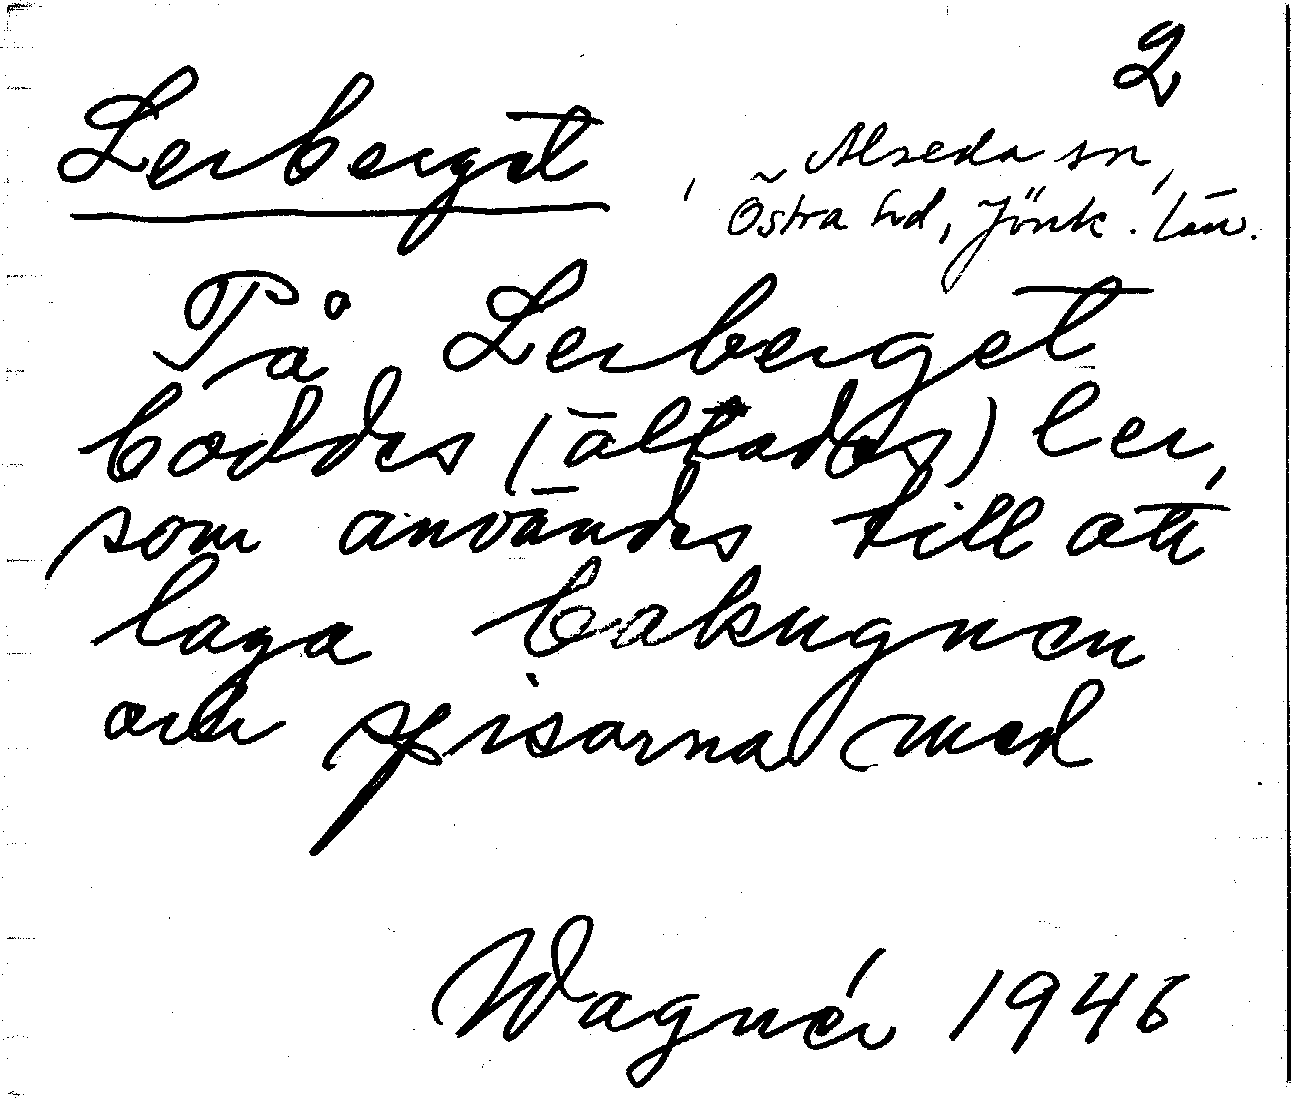 2
Lerberget, Alseda sn,
Östra hd, Jönk. län.
På Lerberget
boddes (ältades) ler,
som användes till att
laga bakugnen
och spisarna med
Wagnér 1946